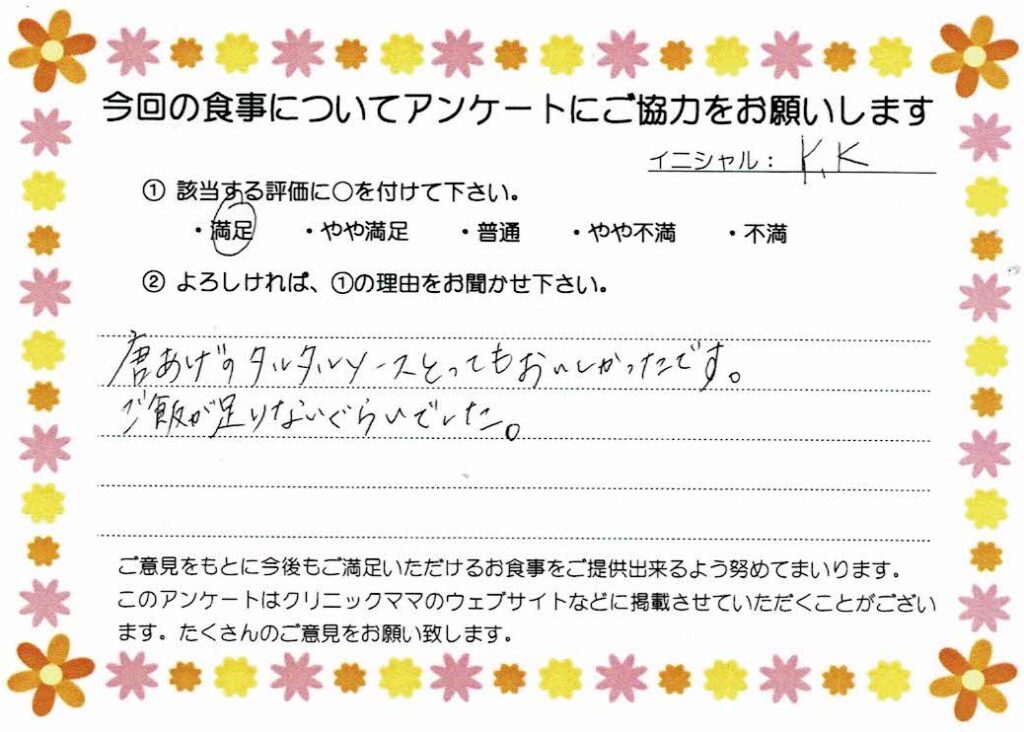 今回の食事についてアンケートにご協力をお願いします
イニシャル： K.K
① 該当する評価に〇を付けて下さい。
・満足 ・やや満足 ・普通 ・やや不満 ・不満
② よろしければ、①の理由をお聞かせ下さい。
唐あげのタルタルソースとってもおいしかったです。
ご飯が足りないぐらいでした。
ご意見をもとに今後もご満足いただけるお食事をご提供出来るよう努めてまいります。
このアンケートはクリニックママのウェブサイトなどに掲載させていただくことがござい
ます。たくさんのご意見をお願い致します。